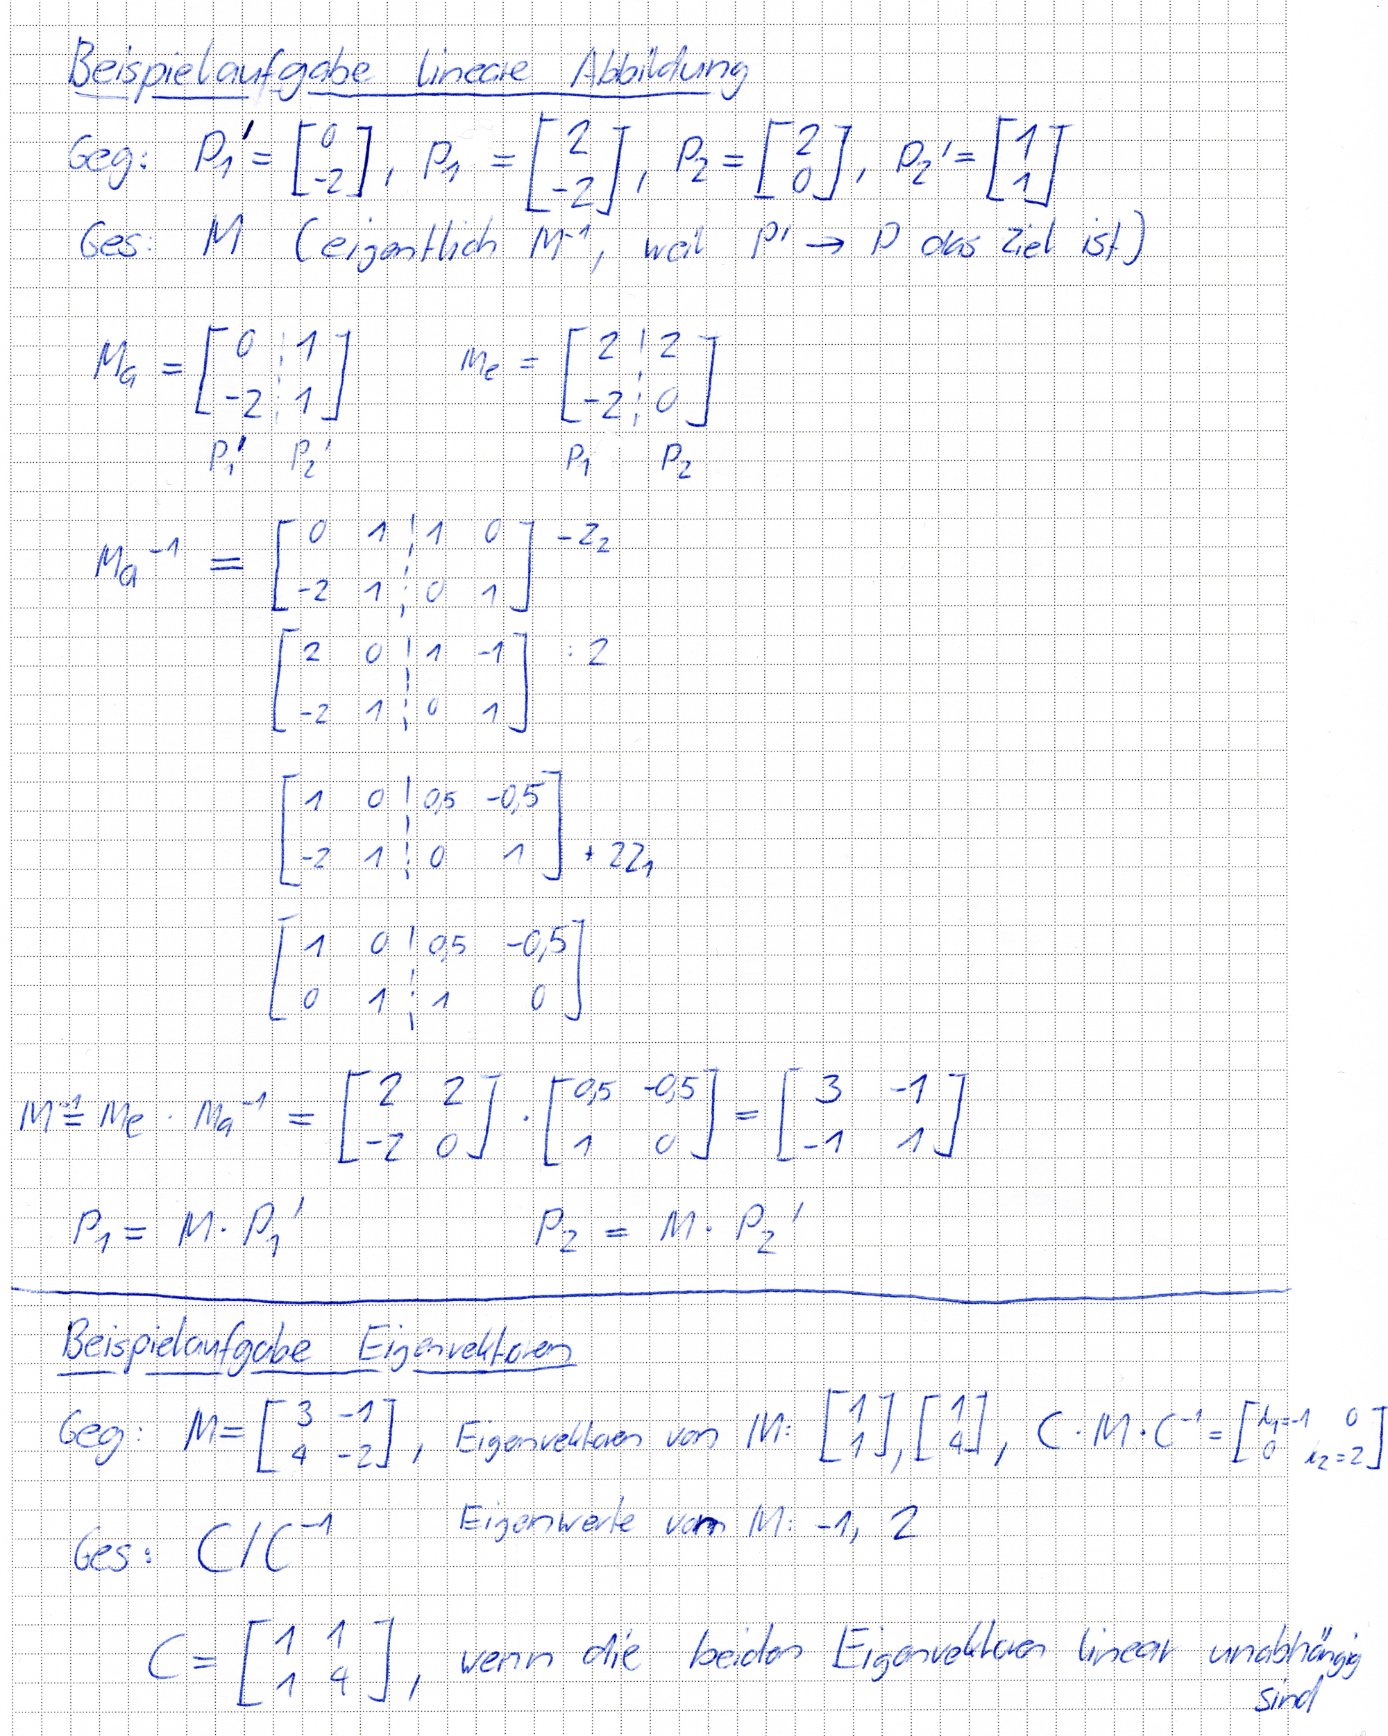 Beispielaufgabe lineare Abbildung
Geg: P₁' = [0; -2], P₁ = [2; -2], P₂ = [2; 0], P₂' = [1; 1]
Ges: M (eigentlich M⁻¹, weil P' → P das Ziel ist)
Ma = [0 ¦ 1; -2 ¦ 1] me = [2 ¦ 2; -2 ¦ 0]
P₁' P₂' P₁ P₂
Ma⁻¹ = [0 1 ¦ 1 0; -2 1 ¦ 0 1] -Z₂
[2 0 ¦ 1 -1; -2 1 ¦ 0 1] :2
[1 0 ¦ 0,5 -0,5; -2 1 ¦ 0 1] +2Z₁
[1 0 ¦ 0,5 -0,5; 0 1 ¦ 1 0]
M⁻¹ = Me · Ma⁻¹ = [2 2; -2 0] · [0,5 -0,5; 1 0] = [3 -1; -1 1]
P₁ = M · P₁' P₂ = M · P₂'
Beispielaufgabe Eigenvektoren
Geg: M = [3 -1; 4 -2], Eigenvektoren von M: [1; 1], [1; 4], C · M · C⁻¹ = [λ₁=-1 0; 0 λ₂=2]
Eigenwerte von M: -1, 2
Ges: C/C⁻¹
C = [1 1; 1 4], wenn die beiden Eigenvektoren linear unabhängig
sind